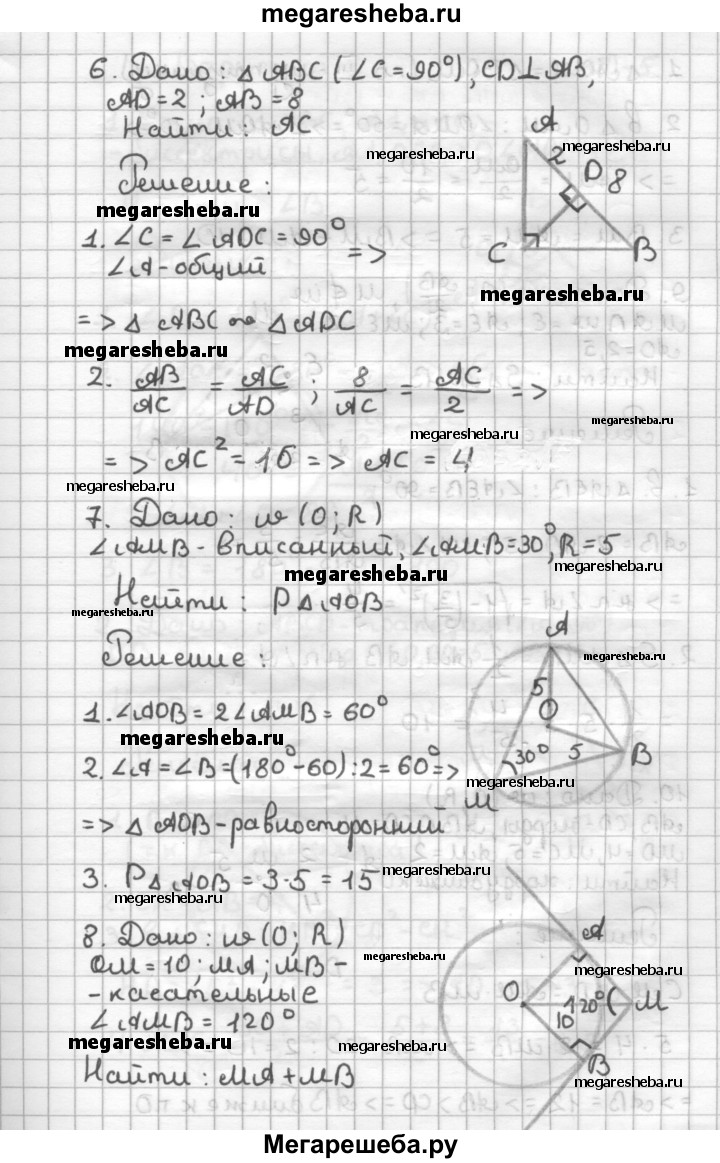 megaresheba.ru
6. Дано: △ ABC (∠C = 90°), CD⊥AB,
AD = 2 ; AB = 8
Найти: AC
A
megaresheba.ru
megaresheba.ru
2
D 8
Решение:
megaresheba.ru
1. ∠C = ∠ADC = 90°
=>
C
B
∠A - общий
megaresheba.ru
=> △ ABC ∾ △ ADC
megaresheba.ru
2. AB/AC = AC/AD ; 8/AC = AC/2 =>
megaresheba.ru
megaresheba.ru
=> AC² = 16 => AC = 4
megaresheba.ru
7. Дано: w (O; R)
∠AMB - вписанный, ∠AMB = 30°, R = 5
megaresheba.ru
megaresheba.ru
Найти: P△AOB
megaresheba.ru
A
Решение:
megaresheba.ru
5
O
1. ∠AOB = 2∠AMB = 60°
megaresheba.ru
30° 5
B
2. ∠A = ∠B = (180° - 60) : 2 = 60° =>
megaresheba.ru
M
=> △ AOB - равносторонний
3. P△ AOB = 3·5 = 15
megaresheba.ru
megaresheba.ru
8. Дано: w (O; R)
A
OM = 10 ; MA ; MB -
megaresheba.ru
megaresheba.ru
- касательные
O
120°
M
10
∠AMB = 120°
megaresheba.ru
megaresheba.ru
B
Найти: MA + MB
megaresheba.ru
Мегарешеба.ру